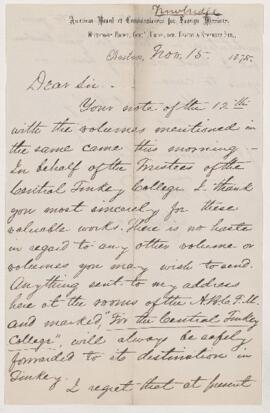 Trowbridge
American Board of Commissioners for Foreign Missions,
Missionary House, Cong'l House, cor. Beacon & Somerset Sts.,
Boston, Nov. 15. 1875.
Dear Sir.
Your note of the 12th
with the volumes mentioned in
the same came this morning.—
In behalf of the Trustees of the
Central Turkey College I thank
you most sincerely for these
valuable works. There is no haste
in regard to any other volume or
volumes you may wish to send.
Anything sent to my address
here at the rooms of the A.B.C.F.M.
and marked, "For the Central Turkey
College", will always be safely
forwarded to its destination in
Turkey.
I regret that at present